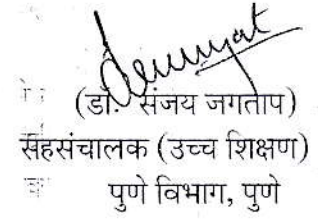 (डॉ. संजय जगताप)
सहसंचालक (उच्च शिक्षण)
पुणे विभाग, पुणे